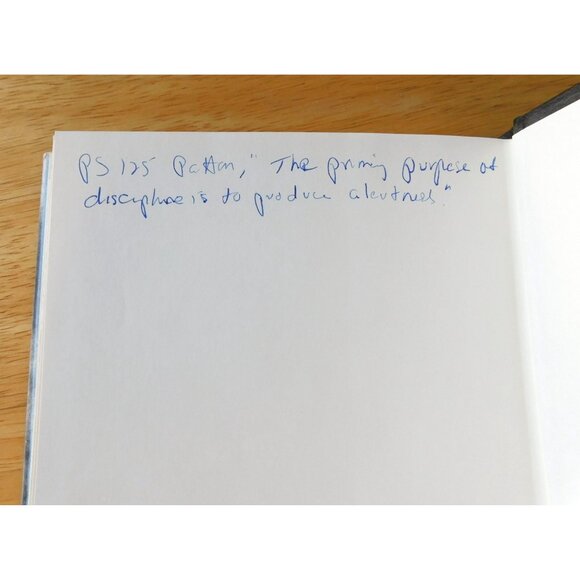 PS 125 Patton, "The primy purpose of
discipline is to produce alertness."